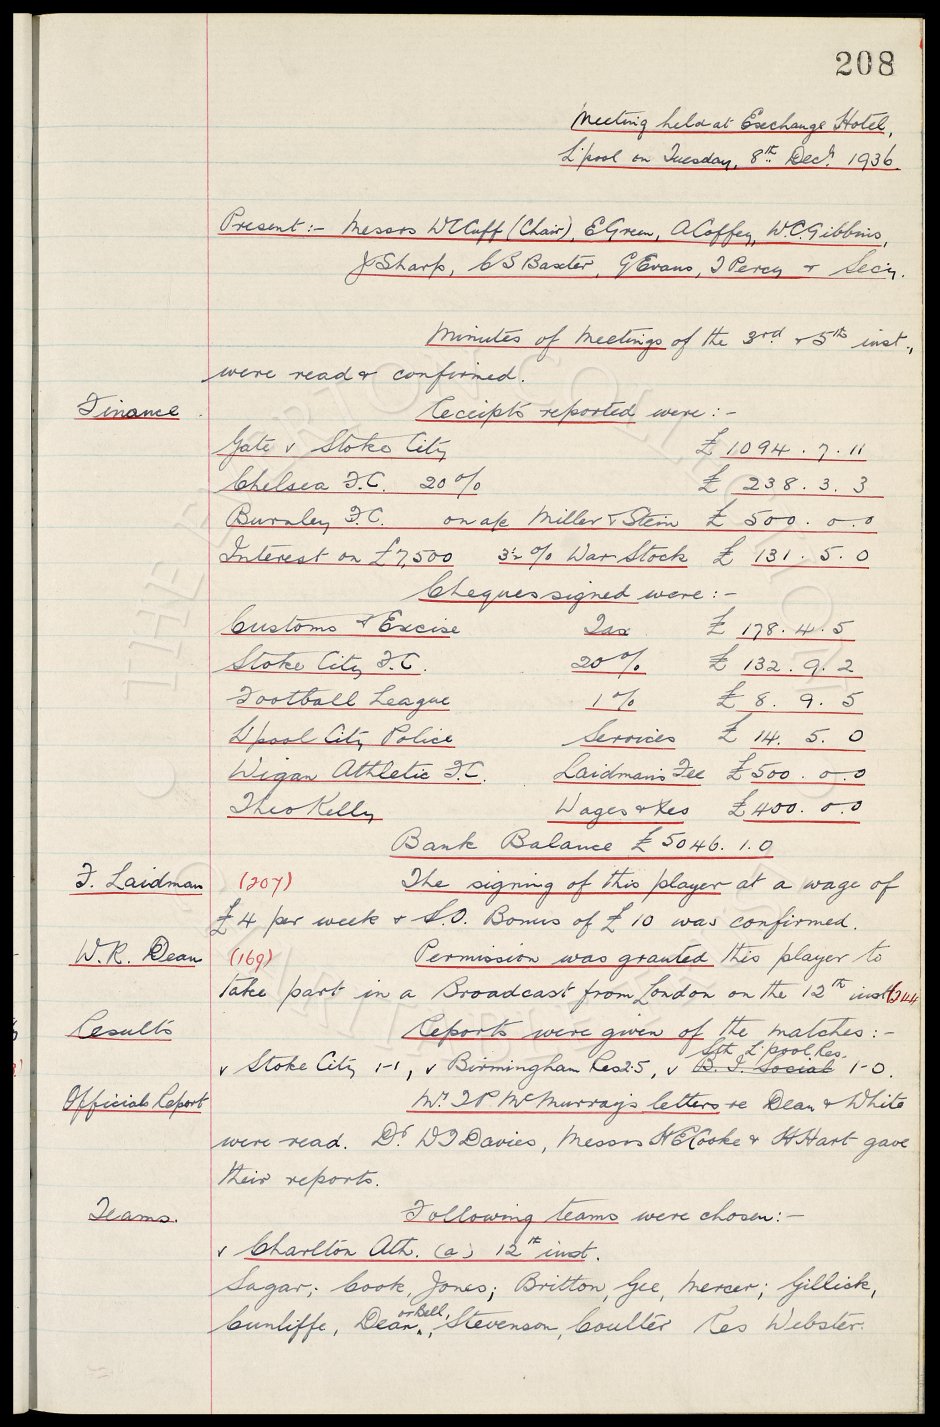 208
Meeting held at Exchange Hotel,
L'pool on Tuesday, 8th Decr. 1936.
Present:- Messrs W C Cuff (Chair), E Green, A Coffey, W.C. Gibbins,
J Sharp, C S Baxter, G Evans, T Percy & Secy.
Minutes of Meetings of the 3rd & 5th inst.,
were read & confirmed.
Finance Receipts reported were:-
Gate v Stoke City £1094.7.11
Chelsea F.C. 20% £ 238.3.3
Burnley F.C. on a/c Miller & Stein £ 500.0.0
Interest on £7,500 3½% War Stock £ 131.5.0
Cheques signed were:-
Customs & Excise Tax £ 178.4.5
Stoke City F.C. 20% £ 132.9.2
Football League 1% £ 8.9.5
L'pool City Police Services £ 14.5.0
Wigan Athletic F.C. Laidman's Fee £500.0.0
Theo Kelly Wages & Xes £400.0.0
Bank Balance £5046.1.0
F. Laidman (207) The signing of this player at a wage of
£4 per week & S.O. Bonus of £10 was confirmed.
W.R. Dean (169) Permission was granted this player to
take part in a Broadcast from London on the 12th inst (244
Results Reports were given of the matches:-
Sth L'pool Res.
v Stoke City 1-1, v Birmingham Res 2-5, v B. I. Social 1-0.
Officials Report Mr T P McMurray's letters re Dean & White
were read. Dr D T Davies, Messrs H E Cooke & H Hart gave
their reports.
Teams. Following teams were chosen:-
v Charlton Ath. (a) 12th inst.
Sagar; Cook, Jones; Britton, Gee, Mercer; Gillick,
or Bell,
Cunliffe, Dean, Stevenson, Coulter Res Webster.
© THE EVERTON COLLECTION
CHARITABLE TRUST